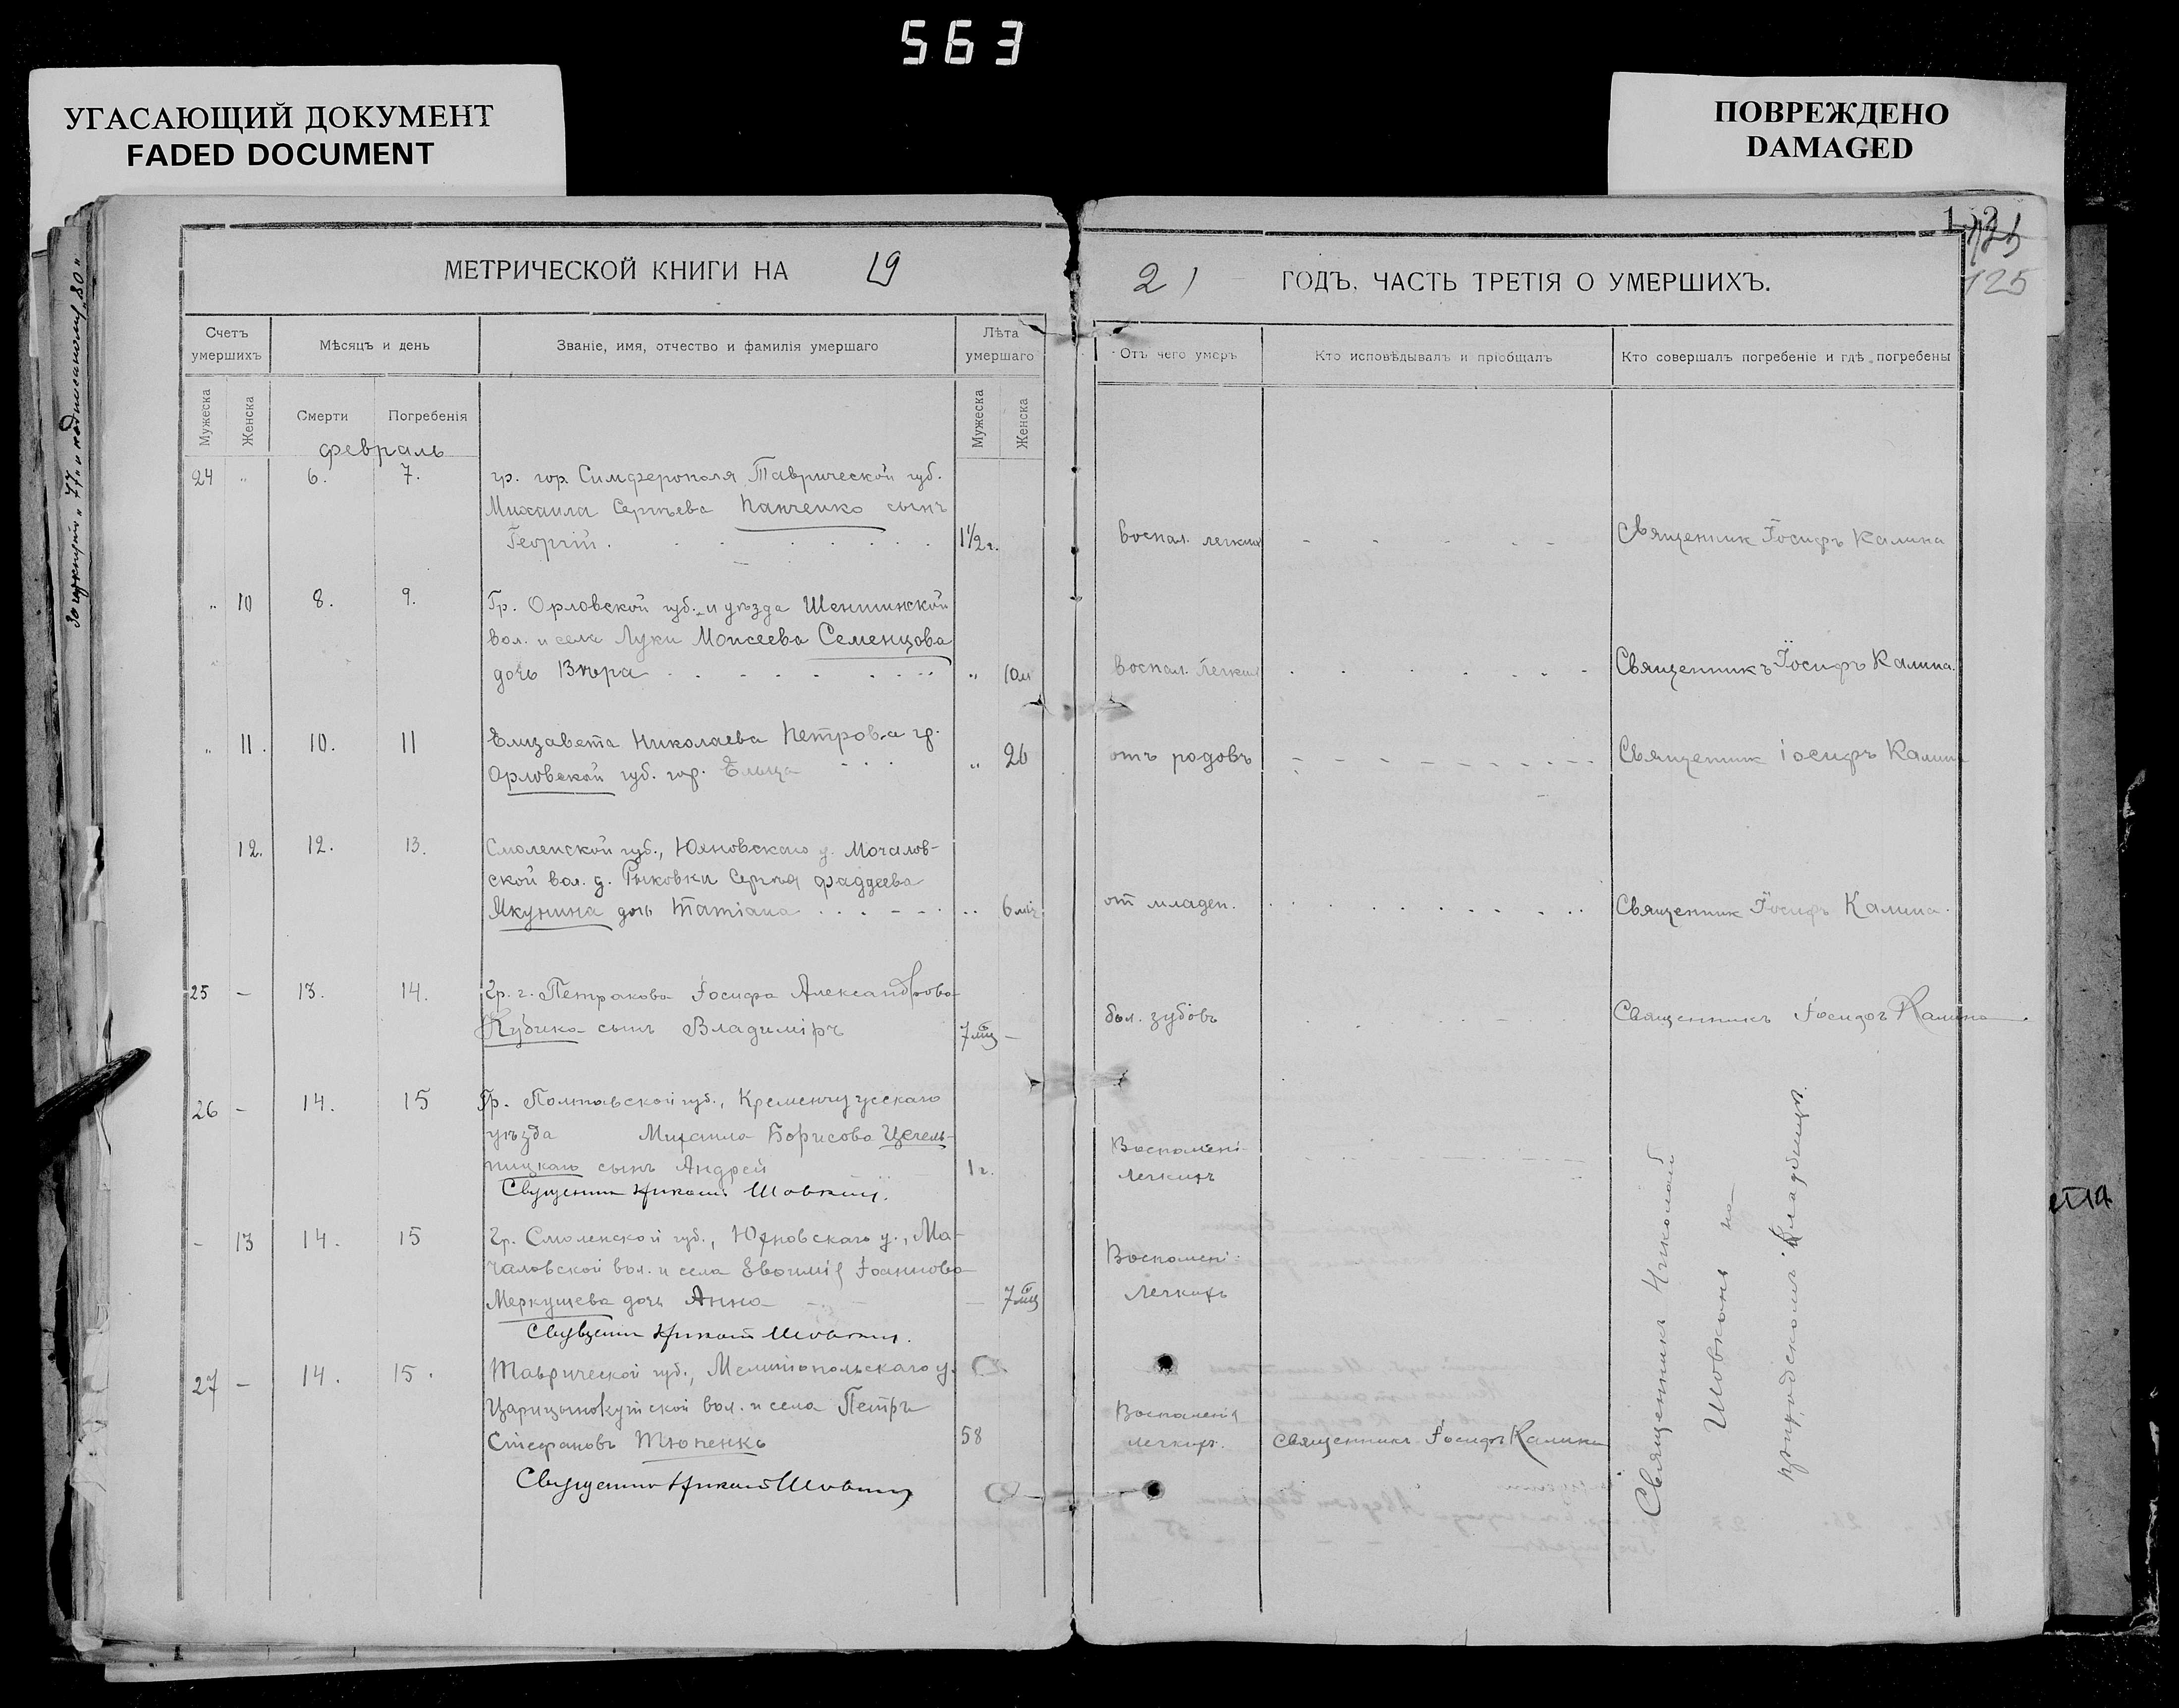 563
УГАСАЮЩИЙ ДОКУМЕНТ
FADED DOCUMENT
ПОВРЕЖДЕНО
DAMAGED
125
МЕТРИЧЕСКОЙ КНИГИ НА 19
21 ГОДЪ. ЧАСТЬ ТРЕТІЯ О УМЕРШИХЪ.
Счетъ умершихъ
Мѣсяцъ и день
Званіе, имя, отчество и фамилія умершаго
Лѣта умершаго
Отъ чего умеръ
Кто исповѣдывалъ и пріобщалъ
Кто совершалъ погребеніе и гдѣ погребены
Мужеска
Женска
Смерти
Погребенія
Мужеска
Женска
февраль
24 " 6. 7. гр. гор. Симферополя Таврической губ.
Михаила Сергѣева Панченко сынъ
Георгій. 1 1/2 г. воспал. легкихъ Священник Іосифъ Калина
" 10 8. 9. Гр. Орловской губ. и уѣзда Шеншинской
вол. и села Луки Моисеева Семенцова
дочь Вѣра " 10 м воспал. легких Священникъ Іосифъ Калина.
" 11. 10. 11 Елизавета Николаева Петрова гр.
Орловской губ. гор. Ельца " 26 отъ родовъ Священник Іосифъ Калина
12. 12. 13. Смоленской губ., Юхновскаго у. Мочалов-
ской вол. д. Рыковки Сергѣя Фаддеева
Якунина дочь Татіана " 6 мѣс. от младен. Священник Іосифъ Калина.
25 — 13. 14. Гр. г. Петракова Іосифа Александрова
Кубика сынъ Владиміръ 7 мѣц — бол. зубовъ Священникъ Іосифъ Калина
26 — 14. 15 Гр. Полтавской губ., Кременчугскаго
уѣзда Михаила Борисова Цегель-
ницкаго сынъ Андрей 1 г. Воспаленія легкихъ
Священник Николай Шовкунъ.
— 13 14. 15 Гр. Смоленской губ., Юхновскаго у., Мо-
чаловской вол. и села Евфимія Іоаннова
Меркушева дочь Анна — 7 мѣц Воспалені: легкихъ
Священник Николай
27 — 14. 15. Таврической губ., Мелитопольскаго у.
Царицынокутской вол. и села Петръ
Стефановъ Тюпенко 58 Воспаленія легкихъ. Священникъ Іосифъ Калина
Священник Николай
Священникъ Николай
Шовкунъ на
приходскомъ кладбищѣ.